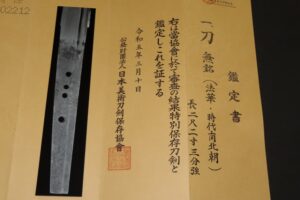 鑑定書
一、刀 無銘(法華・時代南北朝)
長二尺二寸三分強
右は当協會に於て審査の結果特別保存刀剣と
鑑定しこれを証する
令和五年三月十日
公益財団法人日本美術刀剣保存協會
02212